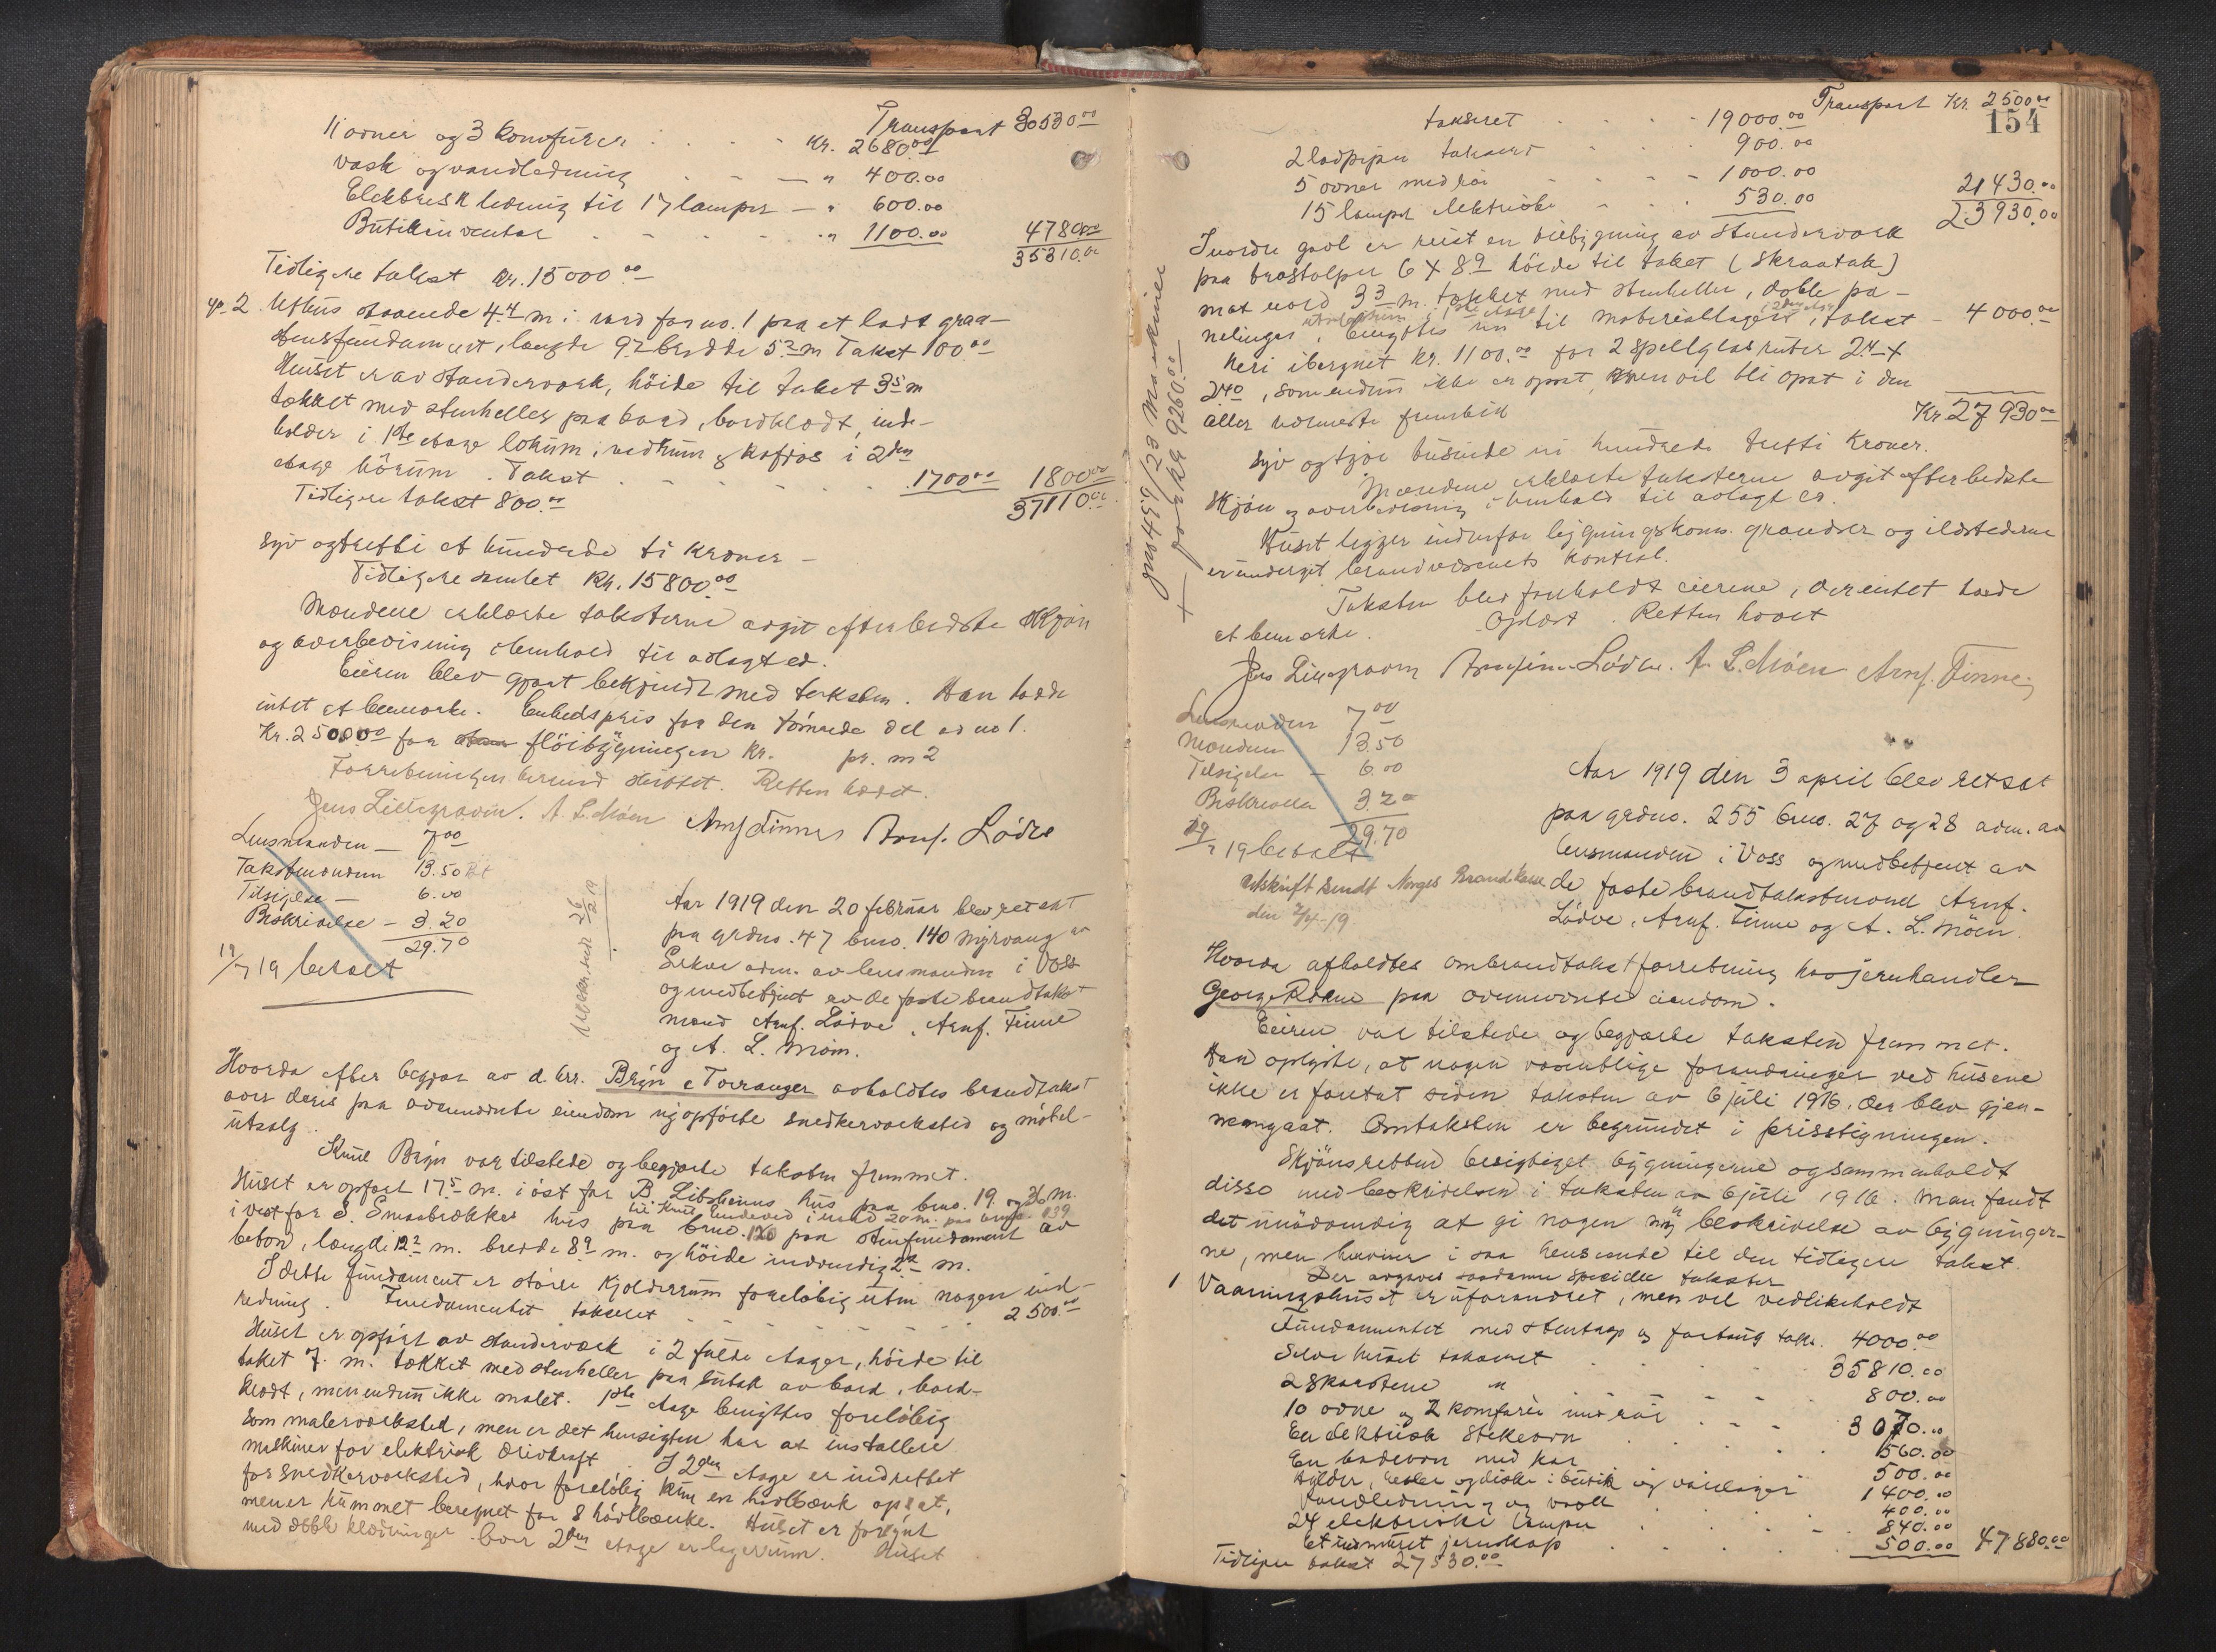 Transport 30530.00
11 ovner og 3 komfurer . . . . Kr. 2680.00
vask og vandledning - - — " 400.00
Elektrisk ledning til 17 lamper — " 600.00
Butikinventar - - - - " 1100.00 4780.00
35310.00
Tidligere takst Kr. 15000.00
No. 2. Uthus staaende 4.4 m i nord for no. 1 paa et lavt graa-
stensfundament, længde 9.2 bredde 5.2 m Takst 100.00
Huset er av standerverk, höide til taket 3.5 m
tækket med stenheller paa bord, bordklædt, inde-
holder i 1ste etage lokum, vedrum & kufjös i 2den
etage hörum. Takst - - - - - 1700.00 1800.00
Tidligere takst 800.00 37110.00
syv og tretti et hundrede ti kroner —
Tidligere samlet Kr. 15800.00
Mændene erklærte taksterne avgit efter bedste skjön
og overbevisning i henhold til avlagt ed.
Eieren blev gjort bekjendt med taksten. Han hadde
intet at bemerke. Enhedspris for den tömrede del av no 1.
Kr. 25000.00 for flöibygningen Kr. pr. m2
Forretningen hermed sluttet. Retten hævet.
Jens Lillegraven. A. L. Möen Arnf. Finne Arnf. Lödve
Lensmanden — 7.00
Takstmændene 13.50
Tilsigelse — 6.00
Beskrivelse — 3.20
29.70
19 betalt
Aar 1919 den 20 februar blev ret sat
paa grdno. 47 bno. 140 Myrvang av
Lekve adm. av lensmanden i Voss
og medbetjent av de faste brandtakst
mænd Arnf. Lödve, Arnf. Finne
og A. L. Möen.
Hvorda efter begjær av d. hrr. Bryn & Torvanger avholdtes brandtakst
over deres paa ovennævnte eiendom nyopförte snedkerverksted og möbel-
utsalg.
Knut Bryn var tilstede og begjærte taksten fremmet.
Huset er opfört 17.5 m. i öst for B. Libsheims hus paa bno. 19 og 26 m.
i nord 20 m. paa bno. 139
i vest for S. Smaabrekkes hus paa bno. 120 paa stenfundament av
beton, længde 12.2 m. bredde 8.9 m. og höide indvendig 2.2 m.
I dette fundament er större Kjolderrum foreløbig uten nogen ind-
redning. Fundamentet takseret - - - - - - 2500.00
Huset er opfört av standerverk i 2 fulde etager, höide til
taket 7. m. tækket med stenheller paa sutak av bord, bord-
klædt, men endnu ikke malet. 1ste etage benyttes foreløbig
som malerverksted, men er det hensigten her at installere
maskiner for elektrisk drivkraft. I 2den etage er indrettet
for snedkerverksted, hvor foreløbig kun en hövlbænk opsat,
men er rummet beregnet for 8 hövlbænke. Huset er forsynt
med doble klædninger. Over 2den etage er lagerrum. Huset
Transport Kr. 2500.00
154
takseret . . . . 19000.00
2 ladpiper takseret . . . 900.00
5 ovner med rör - - - - 1000.00
15 lamper elektriske - - . 530.00 21430.00
23930.00
I nordre gavl er reist en tilbygning av standerverk
paa brostolper 6 x 8.9 höide til taket (skraatak)
mot nord 3.3 m. tækket med stenheller, doble pa-
nelinger, benyttes til materiallager, takst — 4000.00
heri iberegnet Kr. 1100.00 for 2 speilglasruter 2.4 x
2.40, som endnu ikke er opsat, men vil bli opsat i den
aller nærmeste fremtid Kr 27930.00
syv og tjve tusinde ni hundrede tretti kroner.
Mændene erklærte taksterne avgit efter bedste
skjön og overbevisning i henhold til avlagt ed.
Huset ligger indenfor bygningskom. grændser og ildstederne
er undergit brandvæsenets kontrol.
Taksten blev foreholdt eierene, der intet hadde
at bemerke. Oplæst. Retten hævet
Jens Lillegraven Arnfinn Lödve. A. L. Möen Arnf. Finne
Lensmanden 7.00
Mændene 13.50
Tilsigelse — 6.00
Beskrivelse 3.20
29.70
19 betalt
Utskrift sendt Norges Brandkasse
Aar 1919 den 3 april blev ret sat
paa grdno. 255 bno. 27 og 28 adm. av
lensmanden i Voss og medbetjent av
de faste brandtakstmænd Arnf.
Lödve, Arnf. Finne og A. L. Möen.
Hvorda afholdtes ombrandtakstforretning hos jernhandler
George Rokne paa ovennævnte eiendom.
Eieren var tilstede og begjærte taksten fremmet.
Han oplyste, at nogen væsentlige forandringer ved husene
ikke er foretat siden taksten av 6 juli 1916, der blev gjen-
nemgaat. Omtaksten er begrundet i prisstigningen.
Skjönsretten besigtiget bygningerne og sammenholdt
disse med beskrivelsen i taksten av 6 juli 1916. Man fandt
det unödvendig at gi nogen ny beskrivelse av bygninger-
ne, men henviser i saa henseende til den tidligere takst.
Der avgaves saadanne specielle takster
1 Vaaningshuset er uforandret, men vel vedlikeholdt
Fundamentet med stentrap og fortaug taks. 4000.00
Selve huset takseret . . . . 35810.00
2 skorstene " - - - 800.00
10 ovne og 2 komfurer med rör . . - 3070.00
En elektrisk stekeovn . . . . 560.00
En badeovn med kar - - - - 500.00
Hylder, reoler og diske i butik og varelager 1400.00
Vandledning og vask . . . . 400.00
24 elektriske lamper . . . . 840.00
Et indmuret jernskap . . . . 500.00 47880.00
Tidligere takst 27530.00